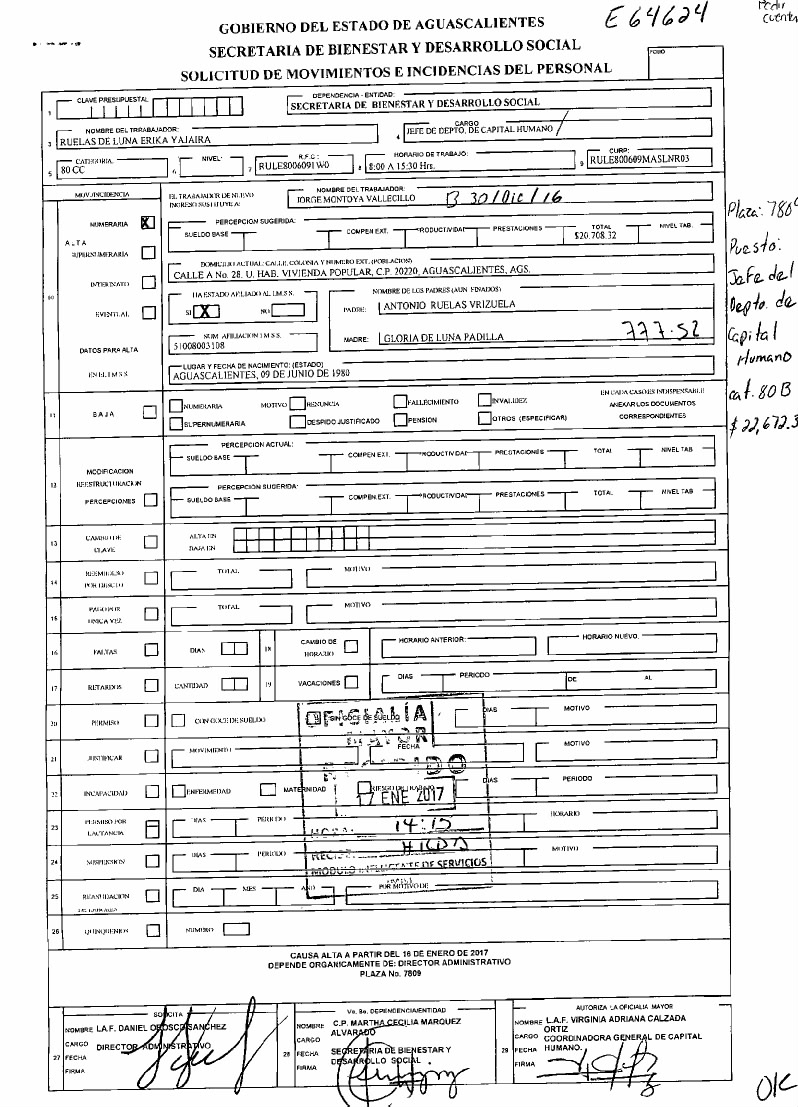 E64624
Pedir
cuenta
GOBIERNO DEL ESTADO DE AGUASCALIENTES
SECRETARIA DE BIENESTAR Y DESARROLLO SOCIAL
SOLICITUD DE MOVIMIENTOS E INCIDENCIAS DEL PERSONAL
FOLIO
1 CLAVE PRESUPUESTAL
DEPENDENCIA - ENTIDAD:
SECRETARIA DE BIENESTAR Y DESARROLLO SOCIAL
3 NOMBRE DEL TRRABAJADOR:
RUELAS DE LUNA ERIKA YAJAIRA
4 CARGO
JEFE DE DEPTO. DE CAPITAL HUMANO
5 CATEGORIA.
80 CC
6 NIVEL:
7 R.F.C.:
RULE8006091W0
8 HORARIO DE TRABAJO:
8:00 A 15:30 Hrs.
9 CURP:
RULE800609MASLNR03
MOV.INCIDENCIA
EL TRABAJADOR DE NUEVO
INGRESO SUSTITUYE A:
NOMBRE DEL TRABAJADOR:
JORGE MONTOYA VALLECILLO
B 30/Dic/16
NUMERARIA X
PERCEPCION SUGERIDA:
SUELDO BASE COMPEN EXT. PRODUCTIVIDAD PRESTACIONES TOTAL NIVEL TAB.
$20,708.32
ALTA
SUPERNUMERARIA
DOMICILIO ACTUAL: CALLE, COLONIA Y NUMERO EXT. (POBLACION)
CALLE A No. 28. U. HAB. VIVIENDA POPULAR, C.P. 20220, AGUASCALIENTES, AGS.
INTERINATO
10
HA ESTADO AFILIADO AL I.M.S.S.
SI X NO
NOMBRE DE LOS PADRES (AUN FINADOS)
PADRE: ANTONIO RUELAS VRIZUELA
EVENTUAL
NUM. AFILIACION I.M.S.S.
51008003108
MADRE: GLORIA DE LUNA PADILLA
777.52
DATOS PARA ALTA
EN EL I.M.S.S.
LUGAR Y FECHA DE NACIMIENTO: (ESTADO)
AGUASCALIENTES, 09 DE JUNIO DE 1980
Puesto:
Jefe del
Depto. de
Capital
Humano
cat. 80 B
11 BAJA
NUMERARIA MOTIVO RENUNCIA FALLECIMIENTO INVALIDEZ
SUPERNUMERARIA DESPIDO JUSTIFICADO PENSION OTROS (ESPECIFICAR)
EN CADA CASO ES INDISPENSABLE
ANEXAR LOS DOCUMENTOS
CORRESPONDIENTES
12 MODIFICACION
REESTRUCTURACION
PERCEPCIONES
PERCEPCION ACTUAL:
SUELDO BASE COMPEN EXT. PRODUCTIVIDAD PRESTACIONES TOTAL NIVEL TAB
PERCEPCION SUGERIDA:
SUELDO BASE COMPEN.EXT. PRODUCTIVIDAD PRESTACIONES TOTAL NIVEL TAB
13 CAMBIO DE
CLAVE
ALTA EN
BAJA EN
14 REEMBOLSO
POR DESCTO
TOTAL MOTIVO
15 PAGO POR
UNICA VEZ
TOTAL MOTIVO
16 FALTAS DIAS
18 CAMBIO DE
HORARIO
HORARIO ANTERIOR: HORARIO NUEVO.
17 RETARDOS CANTIDAD
19 VACACIONES DIAS PERIODO DE AL
20 PERMISO CON GOCE DE SUELDO SIN GOCE DE SUELDO DIAS MOTIVO
OFICIALÍA
MAYOR
21 JUSTIFICAR MOVIMIENTO FECHA MOTIVO
22 INCAPACIDAD ENFERMEDAD MATERNIDAD RIESGO DE TRABAJO DIAS PERIODO
17 ENE 2017
23 PERMISO POR
LACTANCIA
DIAS PERIODO HORARIO
HORA: 14:15
24 SUSPENSION DIAS PERIODO MOTIVO
HILDA
DE SERVICIOS
25 REANUDACION
DIA MES AÑO POR MOTIVO DE
26 QUINQUENIOS NUMERO
CAUSA ALTA A PARTIR DEL 16 DE ENERO DE 2017
DEPENDE ORGANICAMENTE DE: DIRECTOR ADMINISTRATIVO
PLAZA No. 7809
27 SOLICITA
NOMBRE LA.F. DANIEL OROSCO SANCHEZ
CARGO DIRECTOR ADMINISTRATIVO
FECHA
FIRMA
28 Vo. Bo. DEPENDENCIA/ENTIDAD
NOMBRE C.P. MARTHA CECILIA MARQUEZ
ALVARADO
CARGO
FECHA SECRETARIA DE BIENESTAR Y
DESARROLLO SOCIAL
FIRMA
29 AUTORIZA LA OFICIALIA MAYOR
NOMBRE L.A.F. VIRGINIA ADRIANA CALZADA
ORTIZ
CARGO COORDINADORA GENERAL DE CAPITAL
FECHA HUMANO.
FIRMA
OK